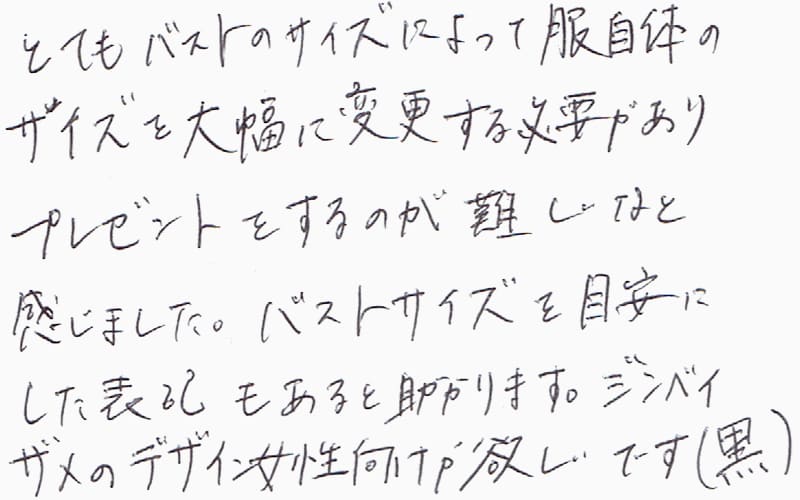 とてもバストのサイズによって服自体の
サイズを大幅に変更する必要があり
プレゼントをするのが難しいなと
感じました。バストサイズを目安に
した表記もあると助かります。ジンベイ
ザメのデザイン女性向けが欲しいです(黒)